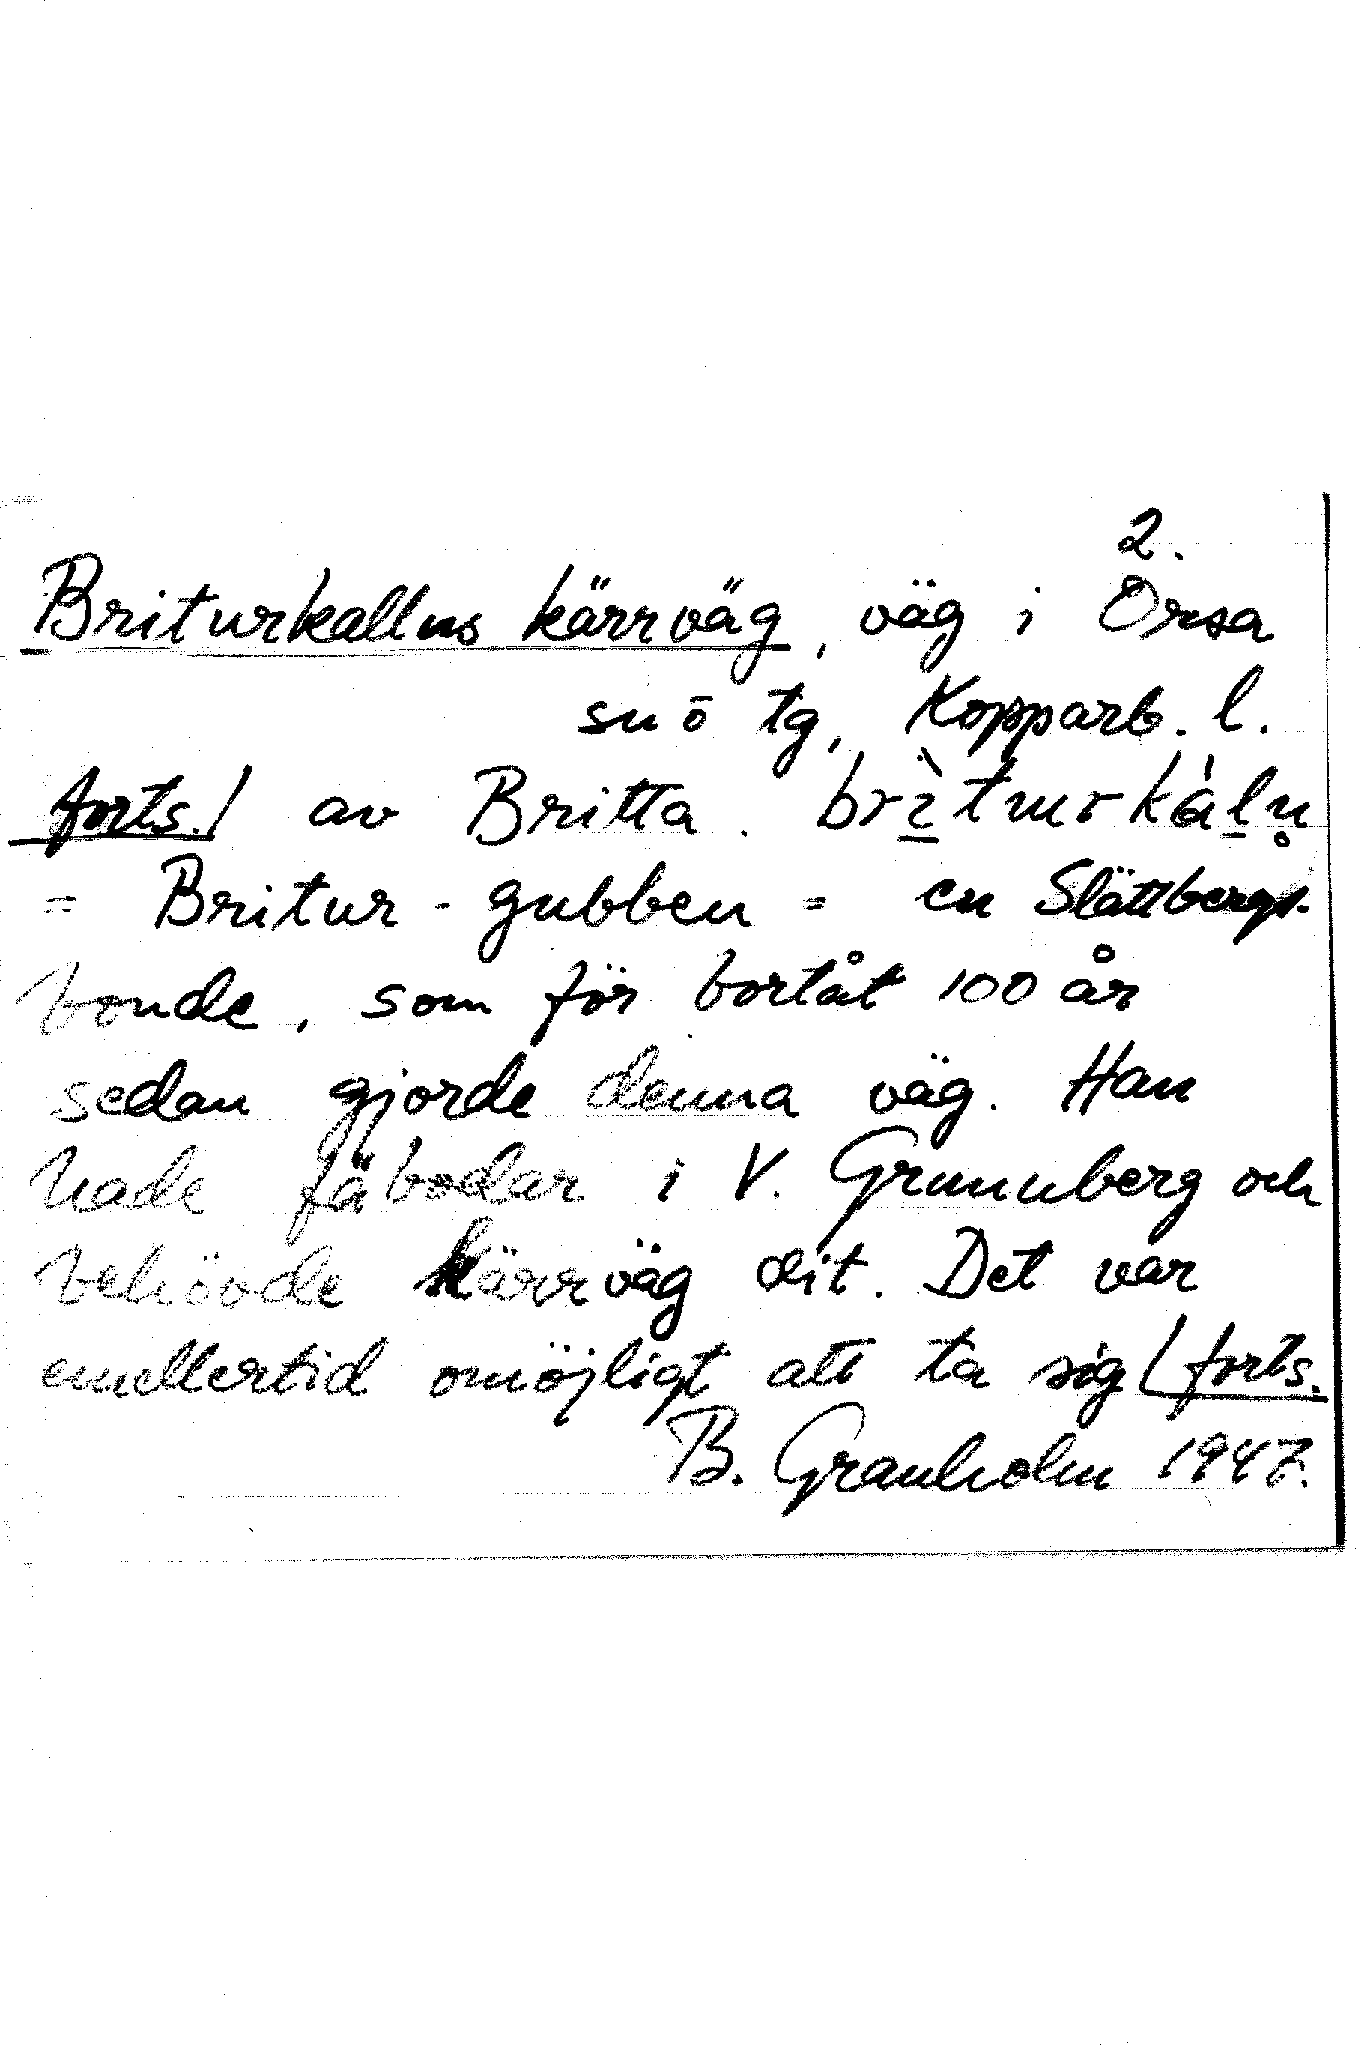 2.
Briturkallns kärrväg, väg i Orsa
sn ō tg, Kopparb. l.
forts./ av Britta. brìturkáln̥
= Britur-gubben = en Slättbergs-
bonde, som för bortåt 100 år
sedan gjorde denna väg. Han
hade fäbodar i V. Grunuberg och
behövde kärrväg dit. Det var
emellertid omöjligt att ta sig /forts.
B. Granholm 1947.